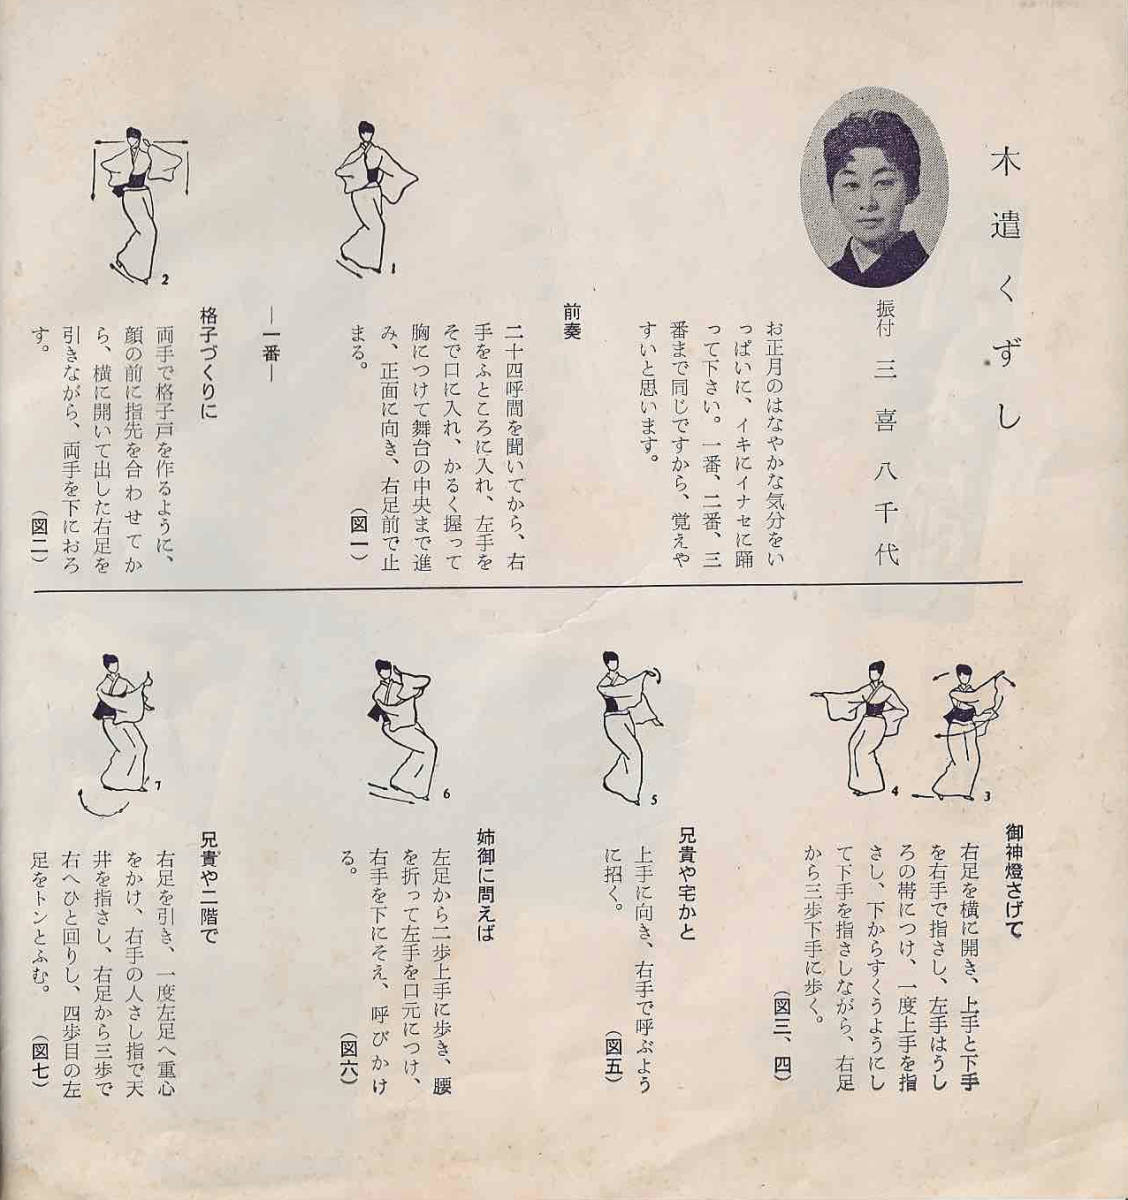 木遣くずし
振付 三喜八千代
お正月のはなやかな気分をい
っぱいに、イキにイナセに踊
って下さい。一番、二番、三
番まで同じですから、覚えや
すいと思います。
前奏
二十四呼間を聞いてから、右
手をふところに入れ、左手を
そで口に入れ、かるく握って
胸につけて舞台の中央まで進
み、正面に向き、右足前で止
まる。
(図一)
1
―一番―
格子づくりに
両手で格子戸を作るように、
顔の前に指先を合わせてか
ら、横に開いて出した右足を
引きながら、両手を下におろ
す。
(図二)
2
御神燈さげて
右足を横に開き、上手と下手
を右手で指さし、左手はうし
ろの帯につけ、一度上手を指
さし、下からすくうようにし
て下手を指さしながら、右足
から三歩下手に歩く。
(図三、四)
3
4
兄貴や宅かと
上手に向き、右手で呼ぶよう
に招く。
(図五)
5
姉御に問えば
左足から二歩上手に歩き、腰
を折って左手を口元につけ、
右手を下にそえ、呼びかけ
る。
(図六)
6
兄貴や二階で
右足を引き、一度左足へ重心
をかけ、右手の人さし指で天
井を指さし、右足から三歩で
右へひと回りし、四歩目の左
足をトンとふむ。
(図七)
7